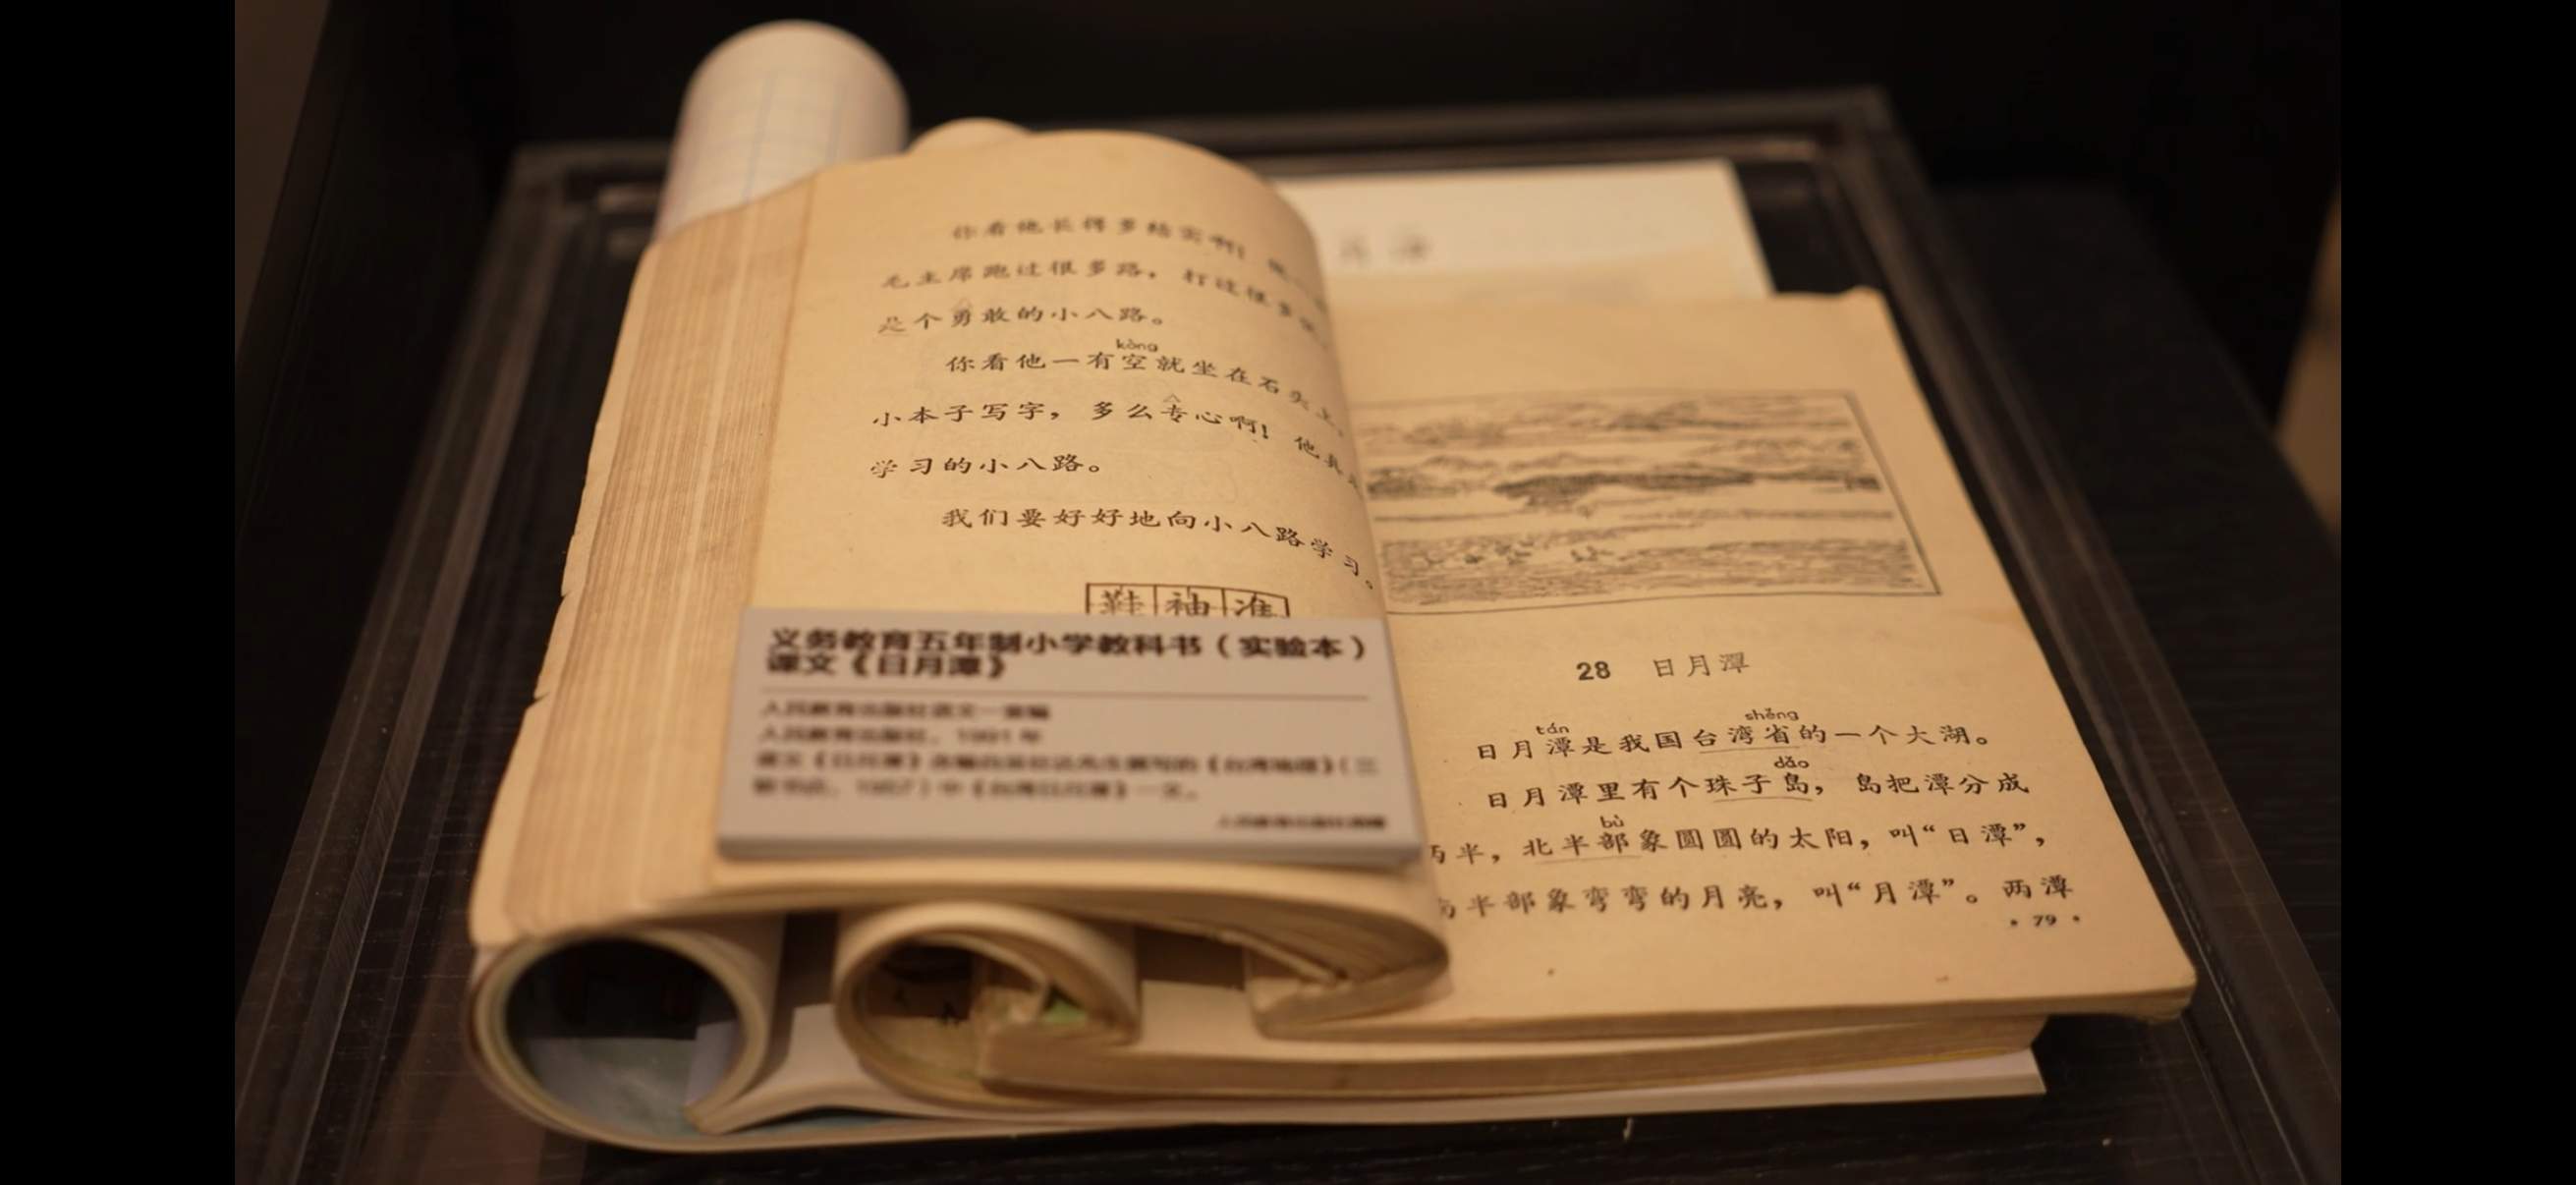 你看他长得多结实啊!
毛主席跑过很多路,打过很多
是个勇敢的小八路。
kòng
你看他一有空就坐在石头上,
小本子写字,多么专心啊!他真是
学习的小八路。
我们要好好地向小八路学习。
鞋 袖 准
义务教育五年制小学教科书(实验本)
课文《日月潭》
人民教育出版社语文一室编
人民教育出版社,1991年
28 日月潭
tán shěng
日月潭是我国台湾省的一个大湖。
dǎo
日月潭里有个珠子岛,岛把潭分成
bù
半,北半部象圆圆的太阳,叫“日潭”,
半部象弯弯的月亮,叫“月潭”。两潭
·79·